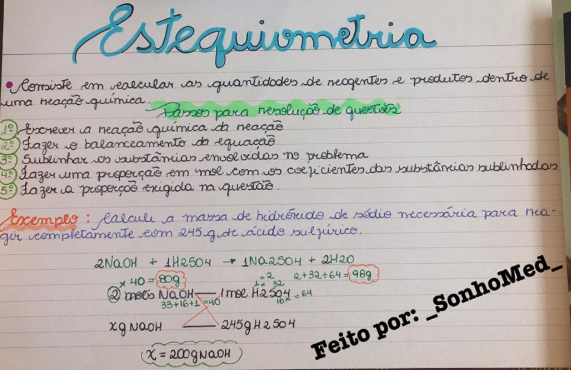 Estequiometria
• Consiste em calcular as quantidades de reagentes e produtos dentro de
uma reação química.
Passos para resolução de questões
1º Escrever a reação química da reação
2º Fazer o balanceamento da equação
3º Sublinhar as substâncias envolvidas no problema
4º Fazer uma proporção em mol com os coeficientes das substâncias sublinhadas
5º Fazer a proporção exigida na questão.
Exemplo: Calcule a massa de hidróxido de sódio necessária para rea-
gir completamente com 245g de ácido sulfúrico.
2NaOH + 1H2SO4 → 1Na2SO4 + 2H2O
x 40 = 80g 2+32+64= 98g
2 mols NaOH — 1 mol H2SO4 = 64
23+16+1=40 16x
x g NaOH — 245g H2SO4
x = 200g NaOH
Feito por: _SonhoMed_